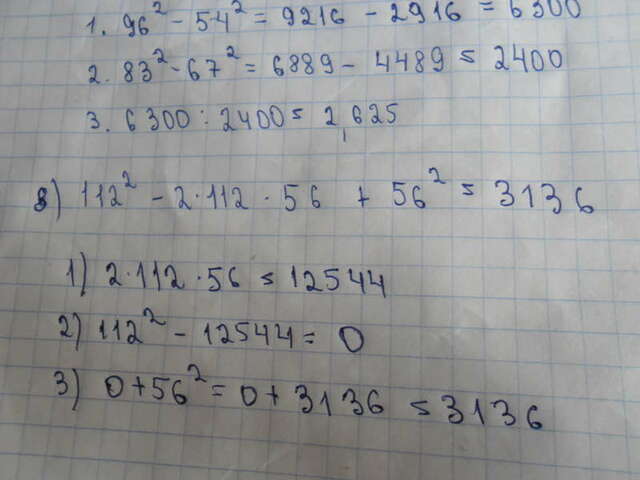 1. 96² - 54² = 9216 - 2916 = 6300
2. 83² - 67² = 6889 - 4489 = 2400
3. 6300 : 2400 = 2,625
8) 112² - 2 · 112 · 56 + 56² = 3136
1) 2 · 112 · 56 = 12544
2) 112² - 12544 = 0
3) 0 + 56² = 0 + 3136 = 3136